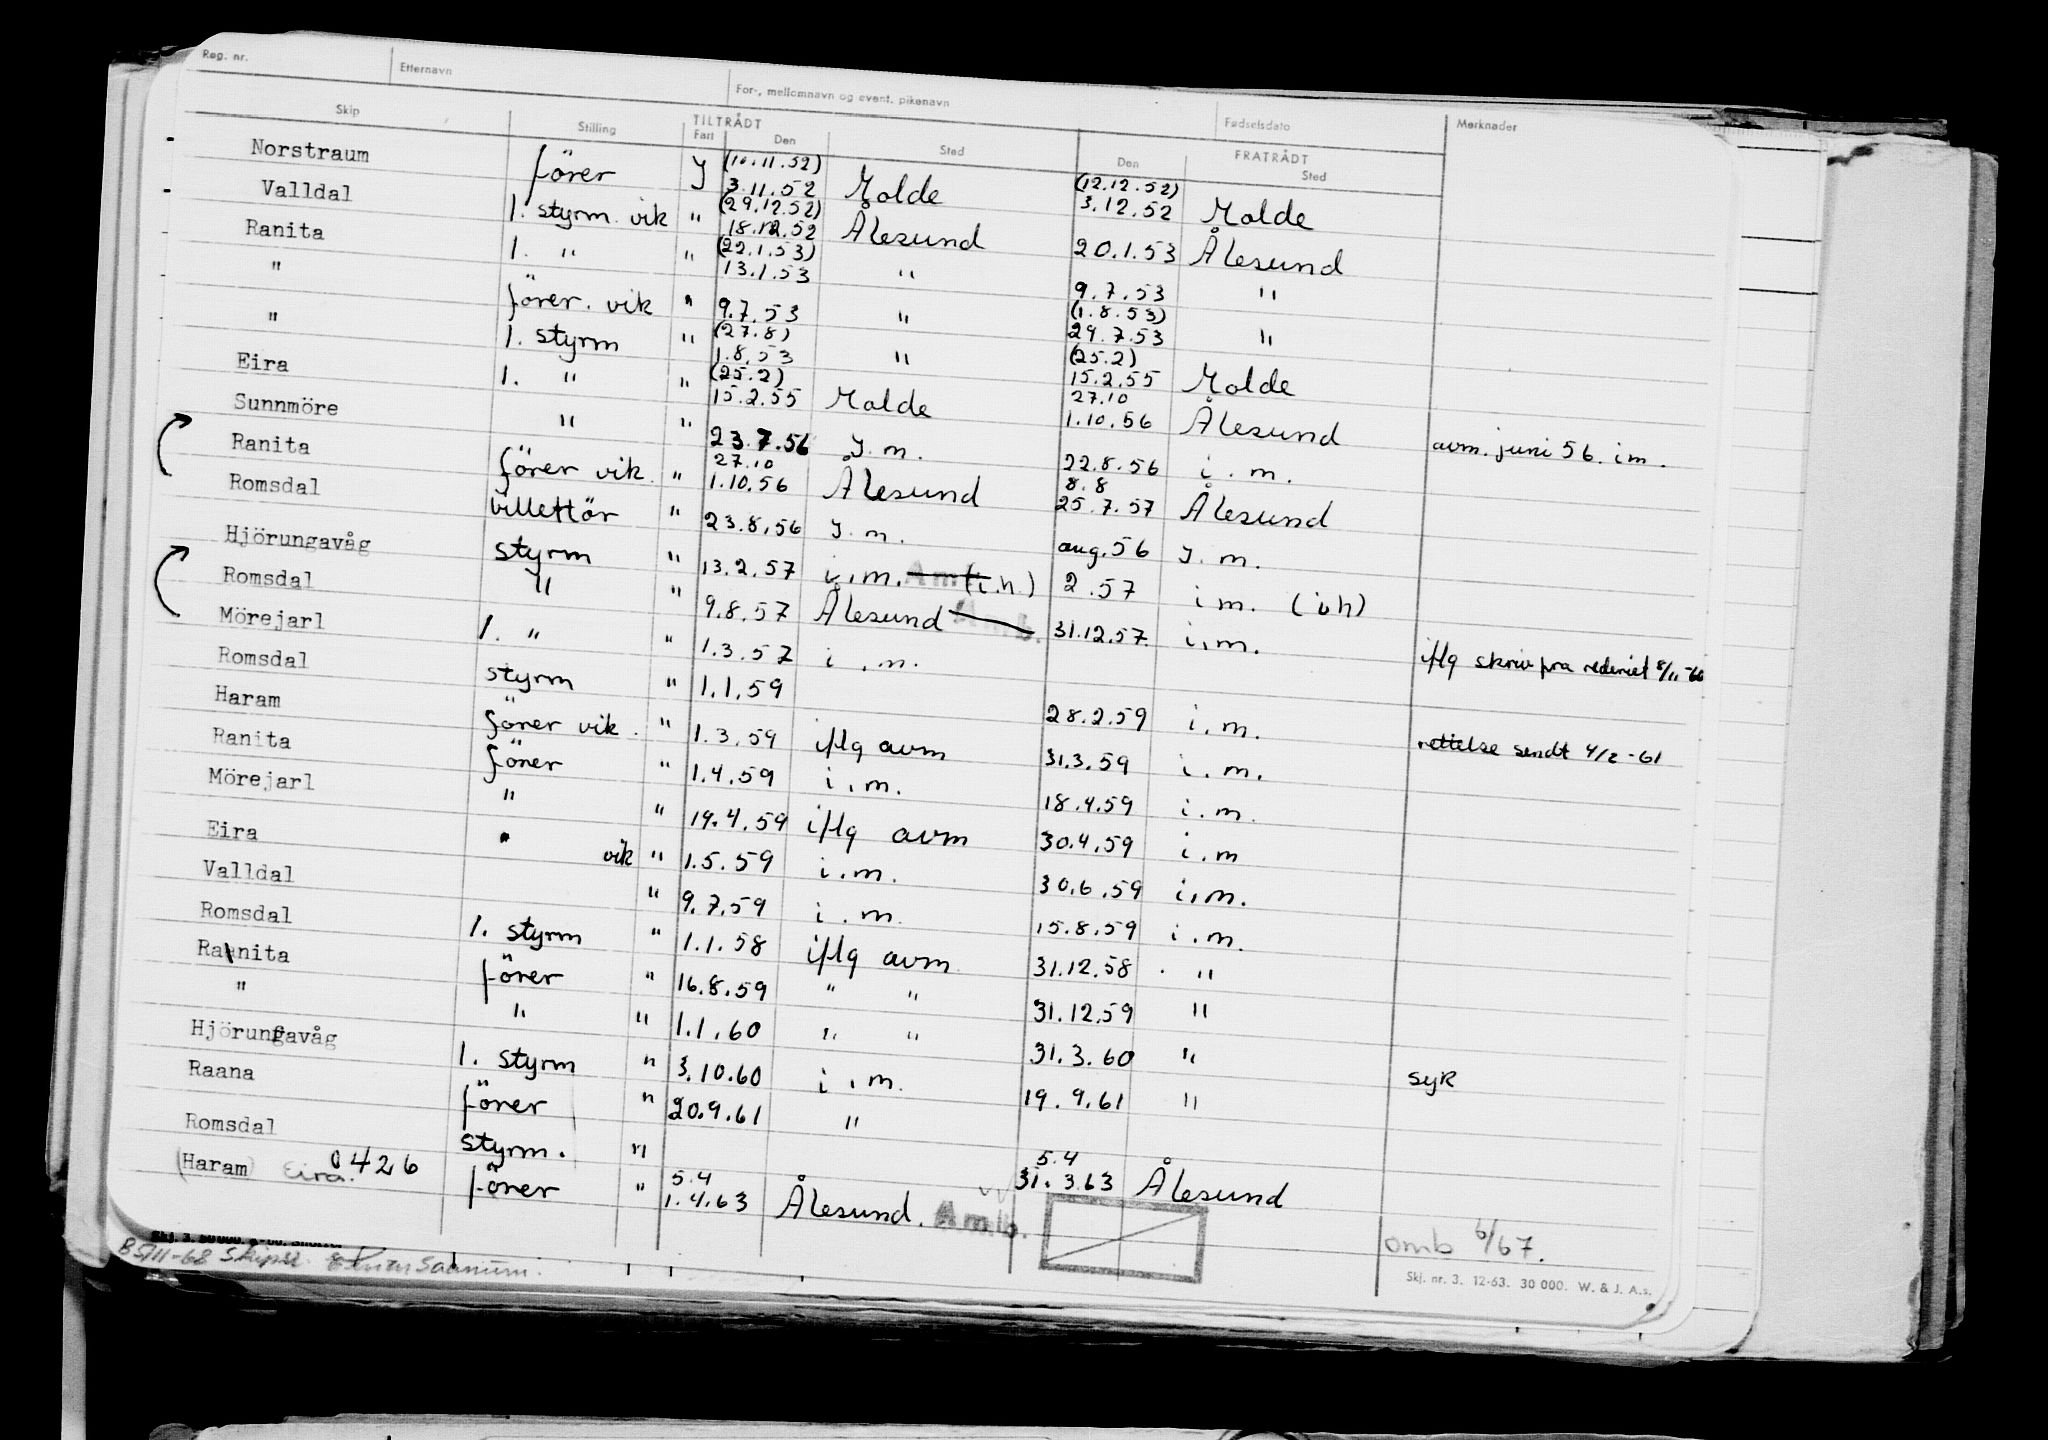 Reg. nr. Etternavn For-, mellomnavn og event. pikenavn Fødselsdato Merknader
Skip Stilling TILTRÅDT Fart Den Sted FRATRÅDT Den Sted
Norstraum förer J (10.11.52) 3.11.52 Molde (12.12.52) 3.12.52 Molde
Valldal 1. styrm vik " (29.12.52) 18.12.52 Ålesund 20.1.53 Ålesund
Ranita 1. " " (22.1.53) 13.1.53 " 9.7.53 "
" förer. vik " 9.7.53 " (1.8.53) 29.7.53 "
" 1. styrm " (27.8) 1.8.53 " (25.2) 15.2.55 Molde
Eira 1. " " (25.2) 15.2.55 Molde 27.10 1.10.56 Ålesund avm. juni 56. i m.
Sunnmöre " " 23.7.56 J. m. 22.8.56 i. m.
Ranita förer vik. " 27.10 1.10.56 Ålesund 8.8 25.7.57 Ålesund
Romsdal billettör " 23.8.56 J. m. aug. 56 J. m.
Hjörungavåg styrm " 13.2.57 i.m. (i.h.) 2.57 i m. (i h)
Romsdal " " 9.8.57 Ålesund Amb. 31.12.57 i.m.
Mörejarl 1. " " 1.3.57 i.m. iflg skriv fra rederiet 8/11-60
Romsdal styrm " 1.1.59 28.2.59 i.m.
Haram förer vik. " 1.3.59 iflg avm 31.3.59 i.m. rettelse sendt 4/2-61
Ranita förer " 1.4.59 i.m. 18.4.59 i.m.
Mörejarl " " 19.4.59 iflg avm 30.4.59 i.m
Eira " vik " 1.5.59 i.m. 30.6.59 i.m.
Valldal " 9.7.59 i.m. 15.8.59 i.m.
Romsdal 1. styrm " 1.1.58 iflg avm 31.12.58 "
Ranita förer " 16.8.59 " " 31.12.59 "
" " " 1.1.60 " " 31.3.60 "
Hjörungavåg 1. styrm " 3.10.60 i.m. 19.9.61 " syk
Raana förer " 20.9.61 "
Romsdal styrm. " 5.4 31.3.63 Ålesund
(Haram) Eira. 0426 förer " 5.4 1.4.63 Ålesund. Amb.
omb 6/67.
Skj. nr. 3. 12-63. 30 000. W. & J. A.s.